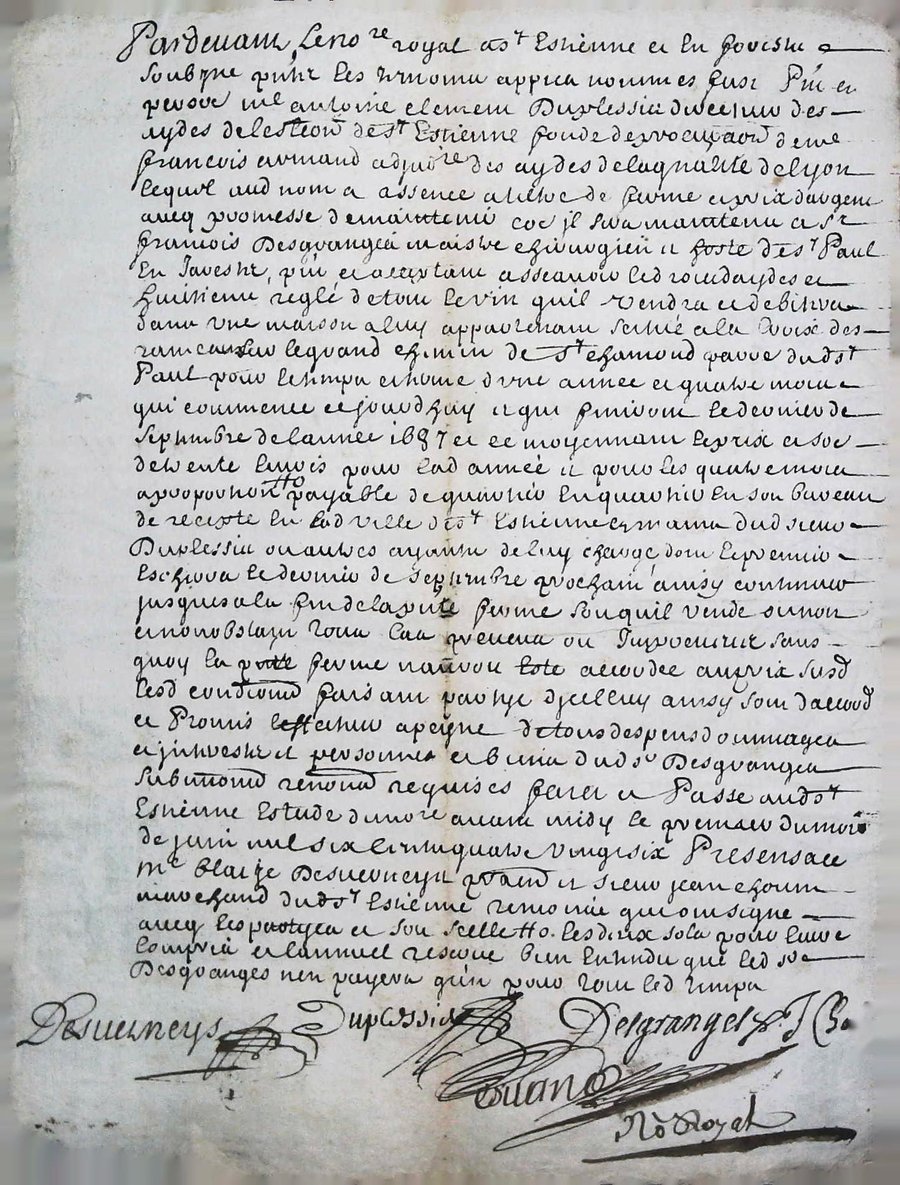 Pardevant le no.re royal a St Estienne et en forestz
soubzne pnt les tesmoins appres nommes fust Pnt en
personne me antoine clement Duplessis directeur des
aydes de lestion de St Estienne fondé de procuraon de me
francois armand adjud.re des aydes de la gnalité de Lyon
lequel aud nom a assencé a tiltre de ferme et prix dargent
avecq promesse de maintenir coe il sera maintenu a sr
francois Desgranges maistre chirurgien et hoste de St Paul
En Javestz, pnt et acceptant asscavoir les droits daydes et
huitieme réglé de tout le vin quil vendra et debitera
dans une maison a luy appartenant scitué a la Croix des
rameaux sur le grand chemin de St chamond parre dud St
Paul pour le temps et terme d'une année et quatre mois
qui commence ce jourdhuy et qui finiront le dernier de
septembre de lannée 1687 et ce moyennant le prix et soe
de trente livres pour lad année et pour les quatre mois
a proportion payable de quartier en quartier en son bureau
de recepte en lad ville de St Estienne es mains dud sieur
Duplessis ou autres ayants de luy charge dont le premier
eschera le dernier de septembre prochain ainsy continuer
jusques a la fin de la pnte ferme soit quil vende ou non
et nonobstant tous cas preveus ou Impreveus sans
quoy la pnte ferme nauroit esté accordée au prix susd
lesd conditions faisant partye dicelluy ainsy sont daccord
et Promis leffectuer a peyne de tous despens dommages
et jnterestz et personnes et biens dud sr Desgranges
submissions renons requises fait et Passé aud St
Estienne Estude du no.re avant midy le premier du mois
de juin mil six cent quatre vingt six Presens a ce
me Blaize Desverneys prand et sieur jean
marchand dud St Estienne tesmoins qui ont signé
avecq les partyes et son scelle tto. les dix sols pour livre
compris et lannuel reservé bien entendu que led sr
Desgranges nen payera qun pour tout led temps
Desverneys Duplessis Desgranges
No Royal